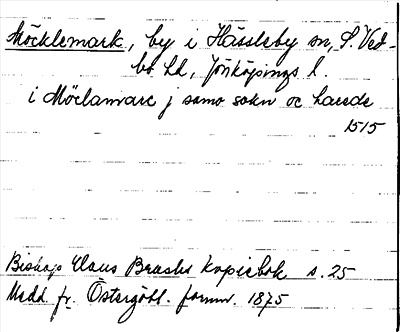 Möcklemark, by i Hässleby sn, S. Ved-
bo hd, Jönköpings l.
i Möclamarc j samo sokn oc härede
1515
Biskop Claus Brasks kopiebok s. 25
Medd. fr. Östergötl. fornm. 1875